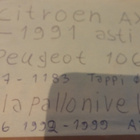 Citroen AX
-1991 asti
Peugeot 106
7-1183 Tappi
la pallonivel
6 1992-1999